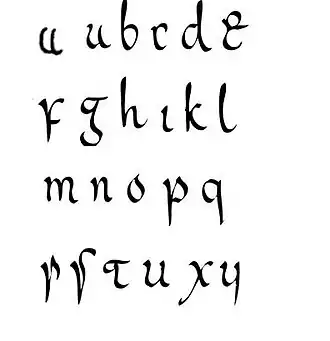 a u b c d e
f g h i k l
m n o p q
r s t u x y